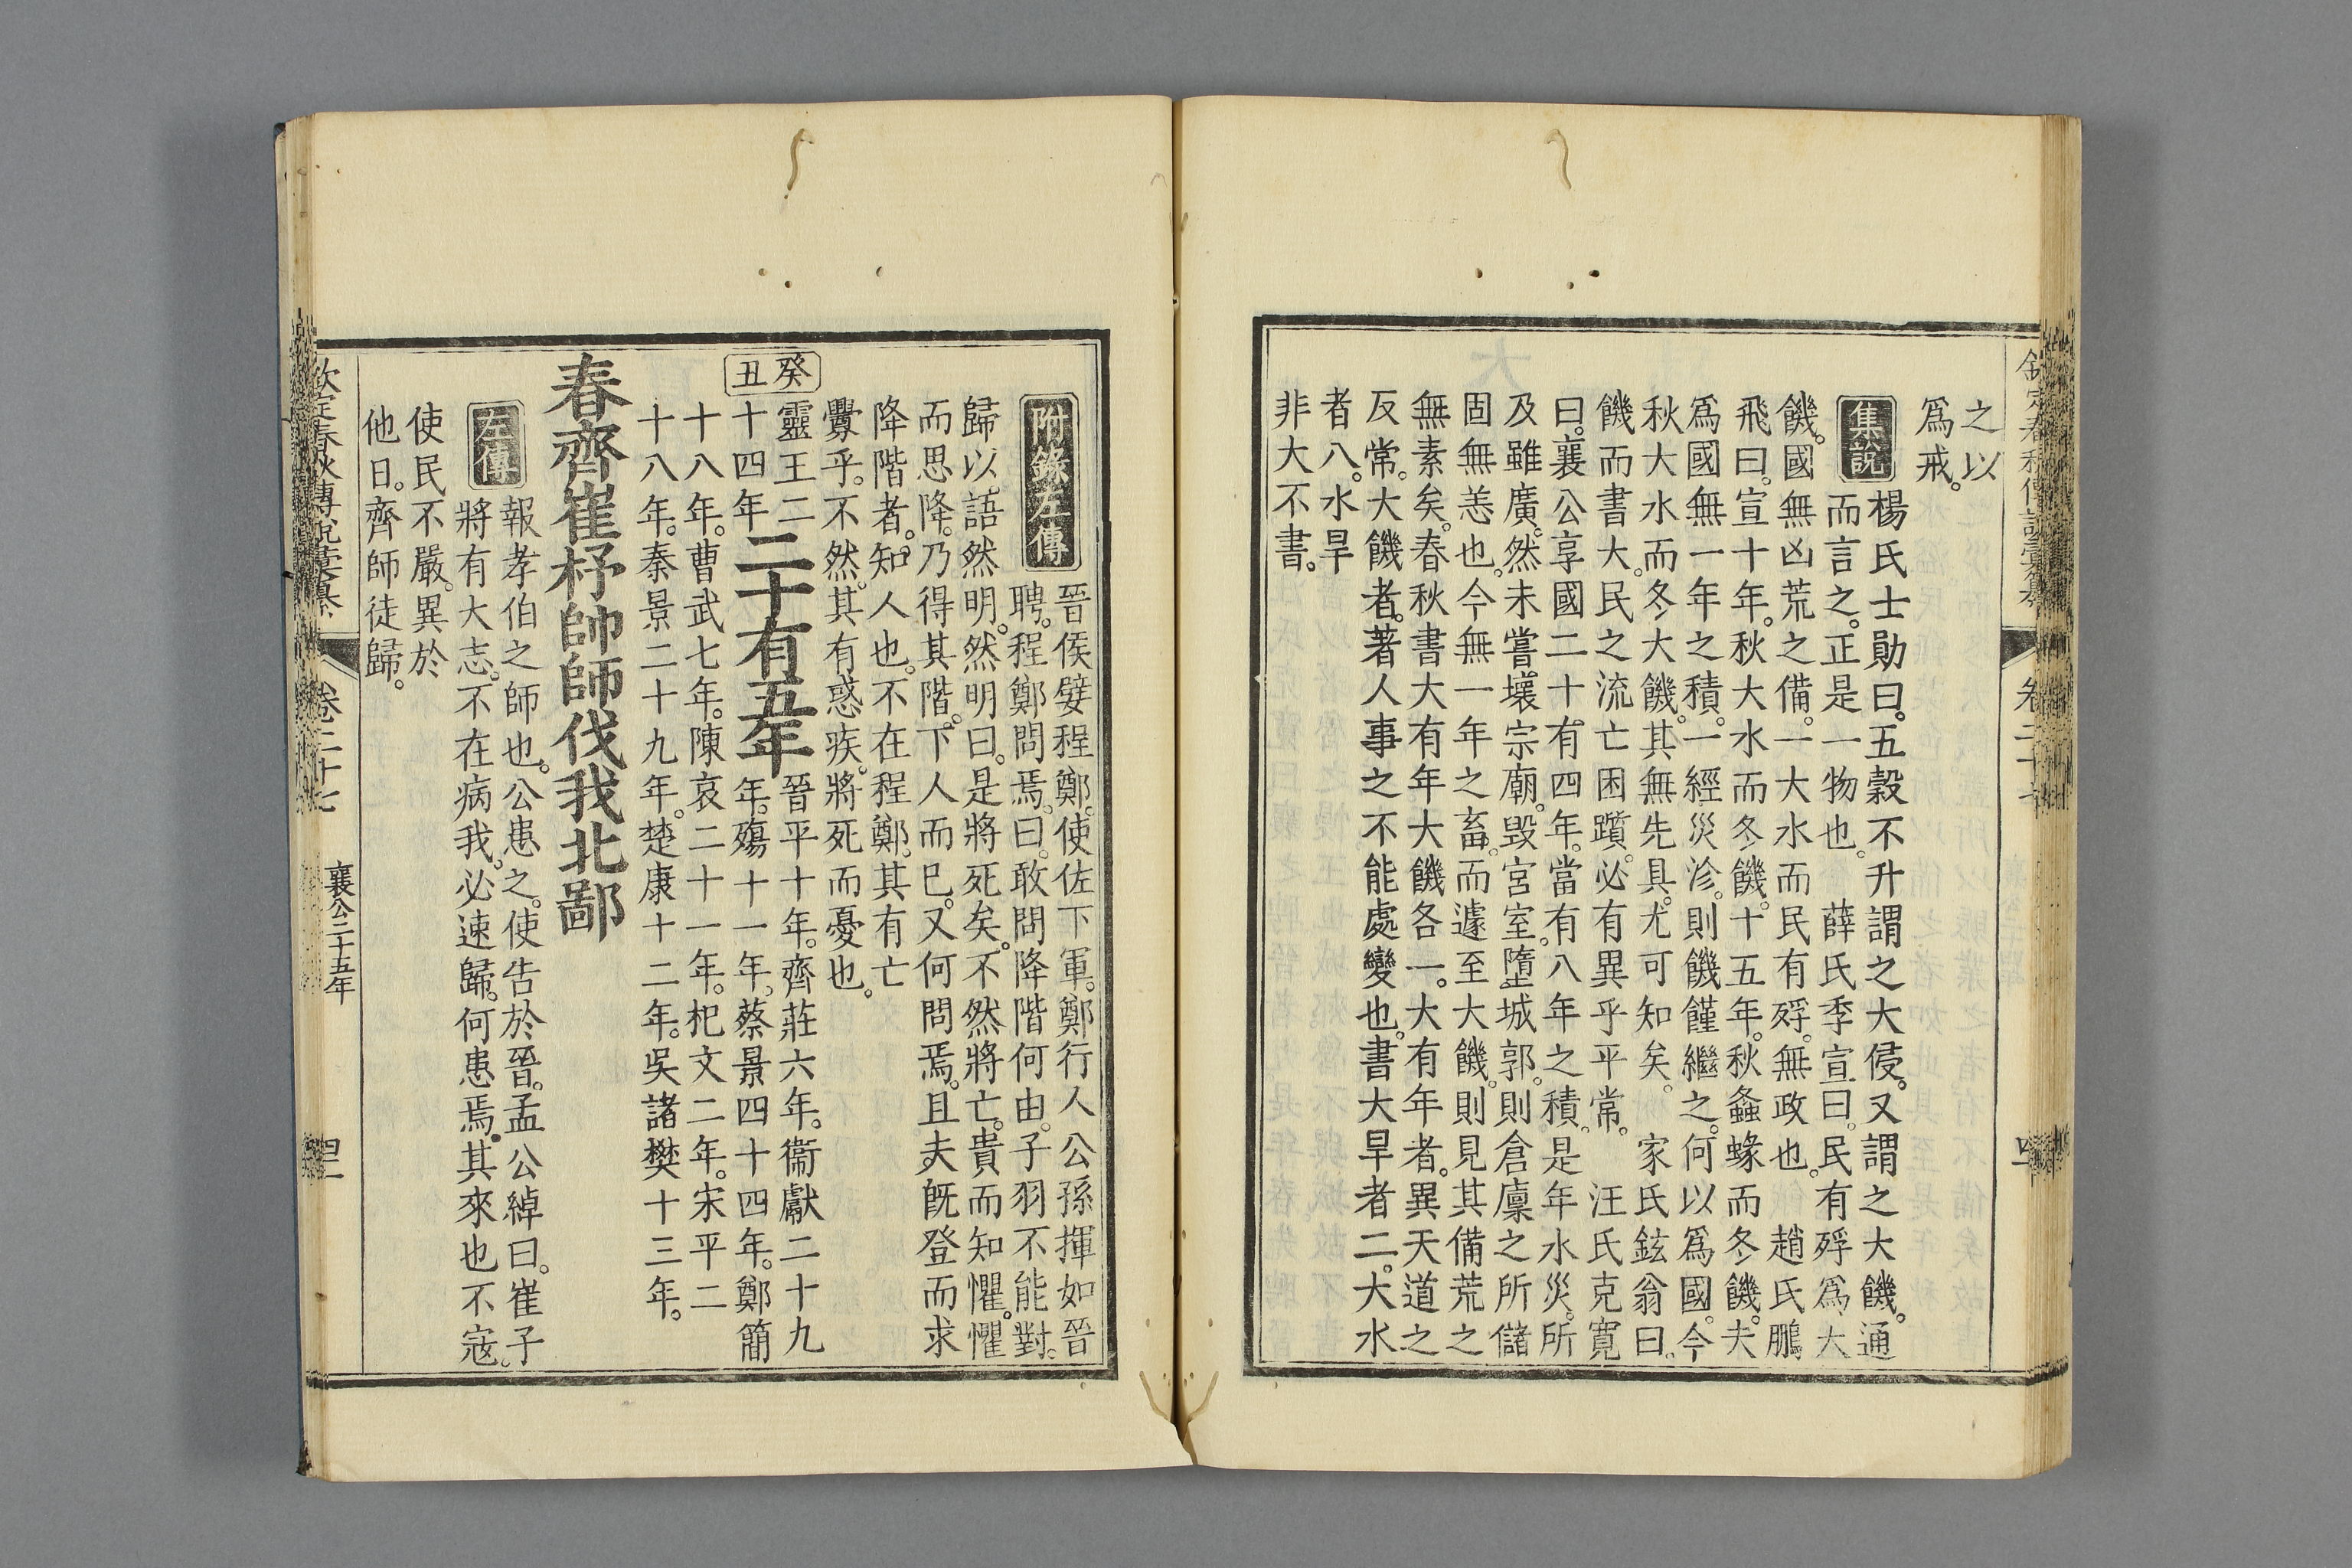 之以
爲戒。
集說
楊氏士勛曰。五穀不升謂之大侵。又謂之大饑。通
而言之。正是一物也。 薛氏季宣曰。民有殍爲大
饑。國無凶荒之備。一大水而民有殍。無政也。 趙氏鵬
飛曰。宣十年。秋大水而冬饑。十五年。秋螽蝝而冬饑。夫
爲國無一年之積。一經災沴。則饑饉繼之。何以爲國。今
秋大水而冬大饑。其無先具。尤可知矣。 家氏鉉翁曰。
饑而書大。民之流亡困躓。必有異乎平常。 汪氏克寬
曰。襄公享國二十有四年。當有八年之積。是年水災。所
及雖廣。然未嘗壞宗廟。毀宮室。墮城郭。則倉廩之所儲
固無恙也。今無一年之畜。而遽至大饑。則見其備荒之
無素矣。春秋書大有年大饑各一。大有年者。異天道之
反常。大饑者。著人事之不能處變也。書大旱者二。大水
者八。水旱
非大不書。
附錄左傳
晉侯嬖程鄭。使佐下軍。鄭行人公孫揮如晉
聘。程鄭問焉。曰。敢問降階何由。子羽不能對。
歸以語然明。然明曰。是將死矣。不然將亡。貴而知懼。懼
而思降。乃得其階。下人而已。又何問焉。且夫旣登而求
降階者。知人也。不在程鄭。其有亡
釁乎。不然。其有惑疾。將死而憂也。
癸丑
靈王二
十四年
二十有五年
晉平十年。齊莊六年。衞獻二十九
年。殤十一年。蔡景四十四年。鄭簡
十八年。曹武七年。陳哀二十一年。杞文二年。宋平二
十八年。秦景二十九年。楚康十二年。吳諸樊十三年。
春齊崔杼帥師伐我北鄙
左傳
報孝伯之師也。公患之。使告於晉。孟公綽曰。崔子
將有大志。不在病我。必速歸。何患焉。其來也不寇。
使民不嚴。異於
他日。齊師徒歸。
欽定春秋傳說彙纂
卷二十七
襄公二十五年